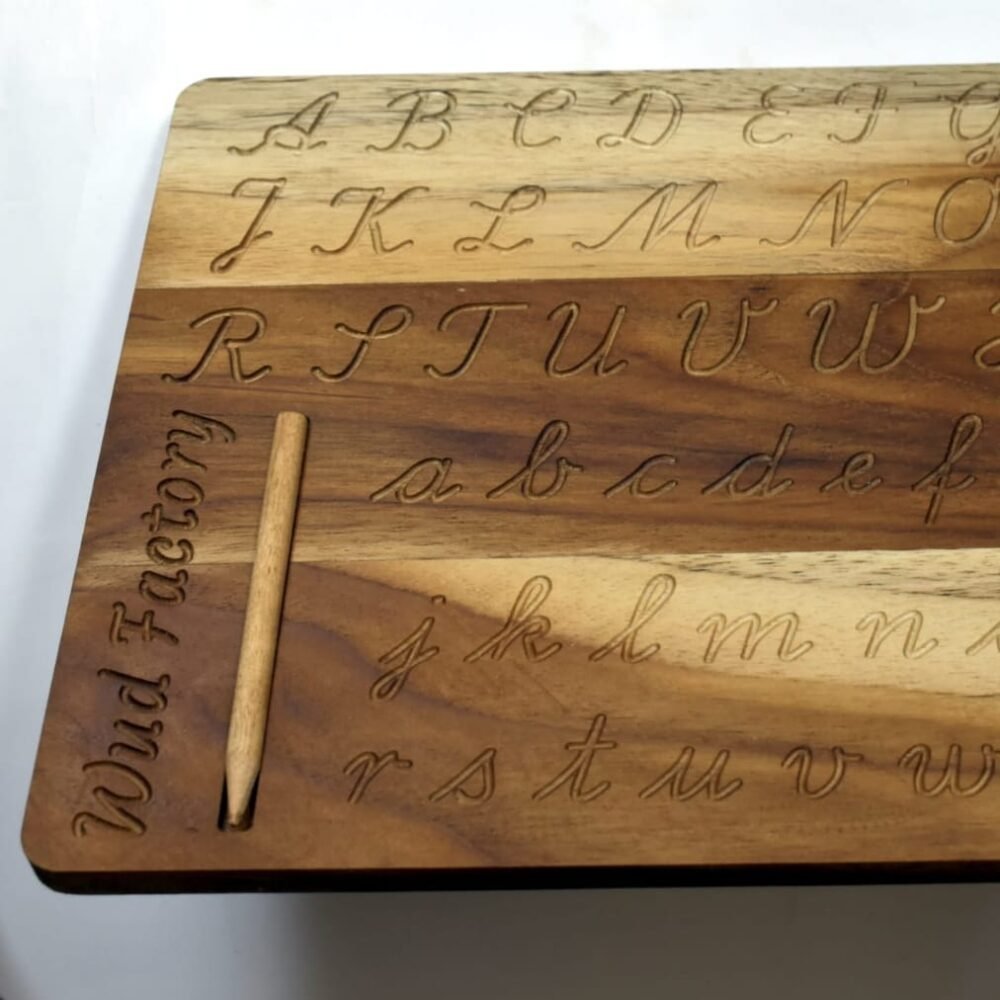 A B C D E F G
J K L M N O
R S T U V W
a b c d e f
j k l m n
r s t u v w
Wud Factory